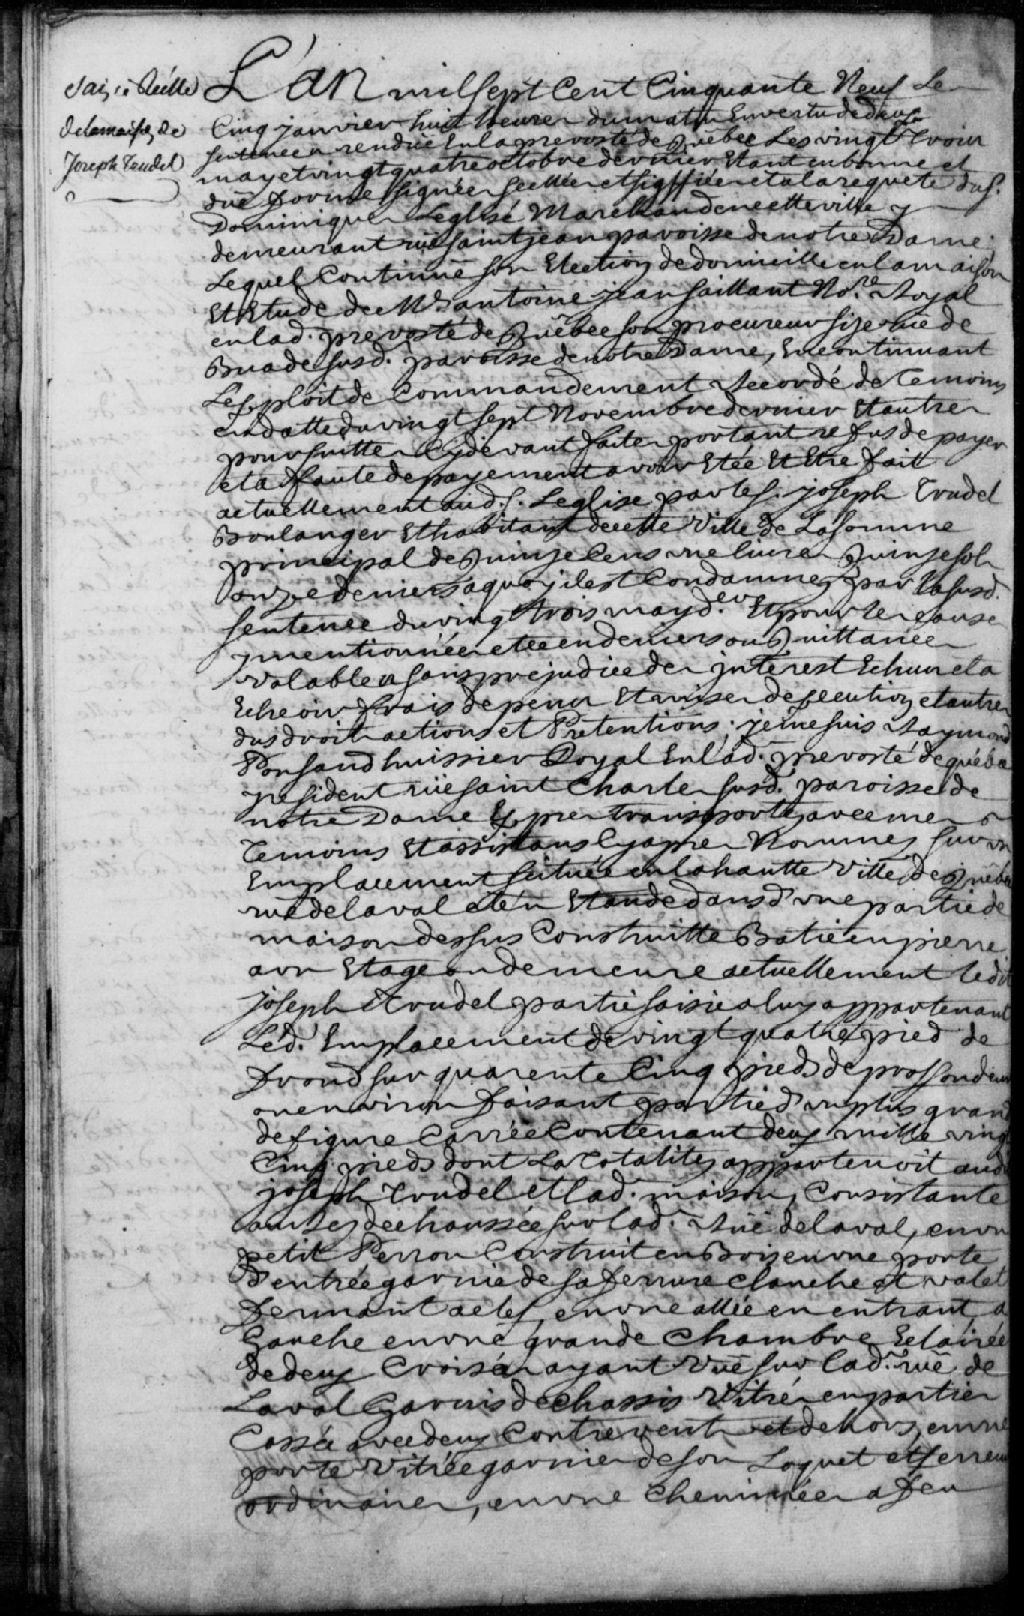 Saisie Réelle
de la maison de
Joseph Trudel
L'an mil sept Cent Cinquante Neuf Le
Cinq janvier huit heures du matin En vertu de deux
sentences rendüe En la prevosté de Quebec Les vingt trois
may et vingt quatre octobre dernier Etant en bonne et
düe forme signée scellée et signiffiée et a la requete du s.
Dominique Leglise Marchand en cette ville y
demeurant rüe saint jean paroisse de notre Dame
Lequel Continüe son Election de domicille en la maison
Et Etude de Me antoine jean saillant No.re Royal
en lad. prevosté de Quebec son procureur size rüe de
Buade susd. paroisse de notre Dame, En continuant
Lesploit de Commandement Recordé de Temoins
en datte du vingt sept Novembre dernier Et autres
poursuittes Cy devant faites portant refus de payer
et a ffaute de payement avoir Etée Et Etre fait
actuellement aud. s. Leglise par le s. joseph Trudel
Boulanger Et habitant de cette Ville de La somme
principal de Quinze Cens une livre Quinze sols
onze deniers a quoy il est Condamnez par la susd.
sentence du vingt trois may d.er Et pour les causes
y mentionnées et ce en deniers ou Quittances
valables sans prejudice des jnterest Echus et a
Echeoir frais depens Et mises dexecution et autres
dus droits actions et Pretentions; je me suis Raymond
Ponsand huissier Royal En lad. prevosté de québec
y resident rüe saint Charles susd. paroisse de
notre Dame Exprès transporté avec mes
Temoins Et assistans Cy apres Nommés sur un
Emplacement scitüé en la hautte Ville de Quebec
rüe de laval et en Etande dans d'une partie de
maison dessus Construitte Batie en pierre
a un Etage ou demeure actuellement ledit
joseph Trudel partie saisie a luy appartenant
Led. Emplacement de vingt quatre pied de
frond sur quarente Cinq pieds de proffondeur
ou environ faisant partie d'un plus grand
de figure Carrée Contenant deux mille vingt
Cinq pieds dont La Totalitez appartenoit aud.
joseph Trudel et lad. maison, Consistante
au Rez de chaussée sur lad. Rüe de laval, en un
petit Perron Construit en Bois en une porte
D'entrée garnie de sa serrure clanche et valet
fermant a clef, en une allée en entrant, a
Gauche en une grande Chambre Eclairée
de deux Croisées ayant Vüe sur lad. rüe de
Laval Garnis de chassis Vitrés en parties
Cassés avec deux Contrevents et dehors, en une
porte Vitrée garnie de son Loquet et serrure
ordinaire, en une Cheminée a feu